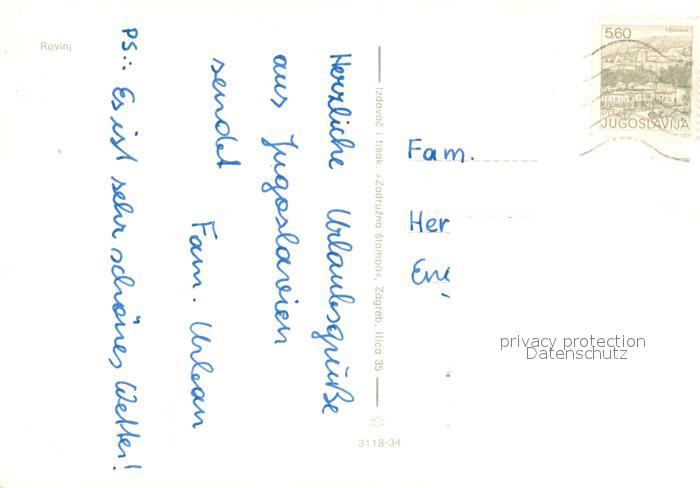 Rovinj
Herzliche Urlaubsgrüße
aus Jugoslavien
sendet
Fam. Urban
PS.: Es ist sehr schönes Wetter!
Izdavač i tisak «Zadružna štampa«, Zagreb, Ilica 35
3118-34
5,60
JUGOSLAVIJA
Fam.
Her
privacy protection
Datenschutz